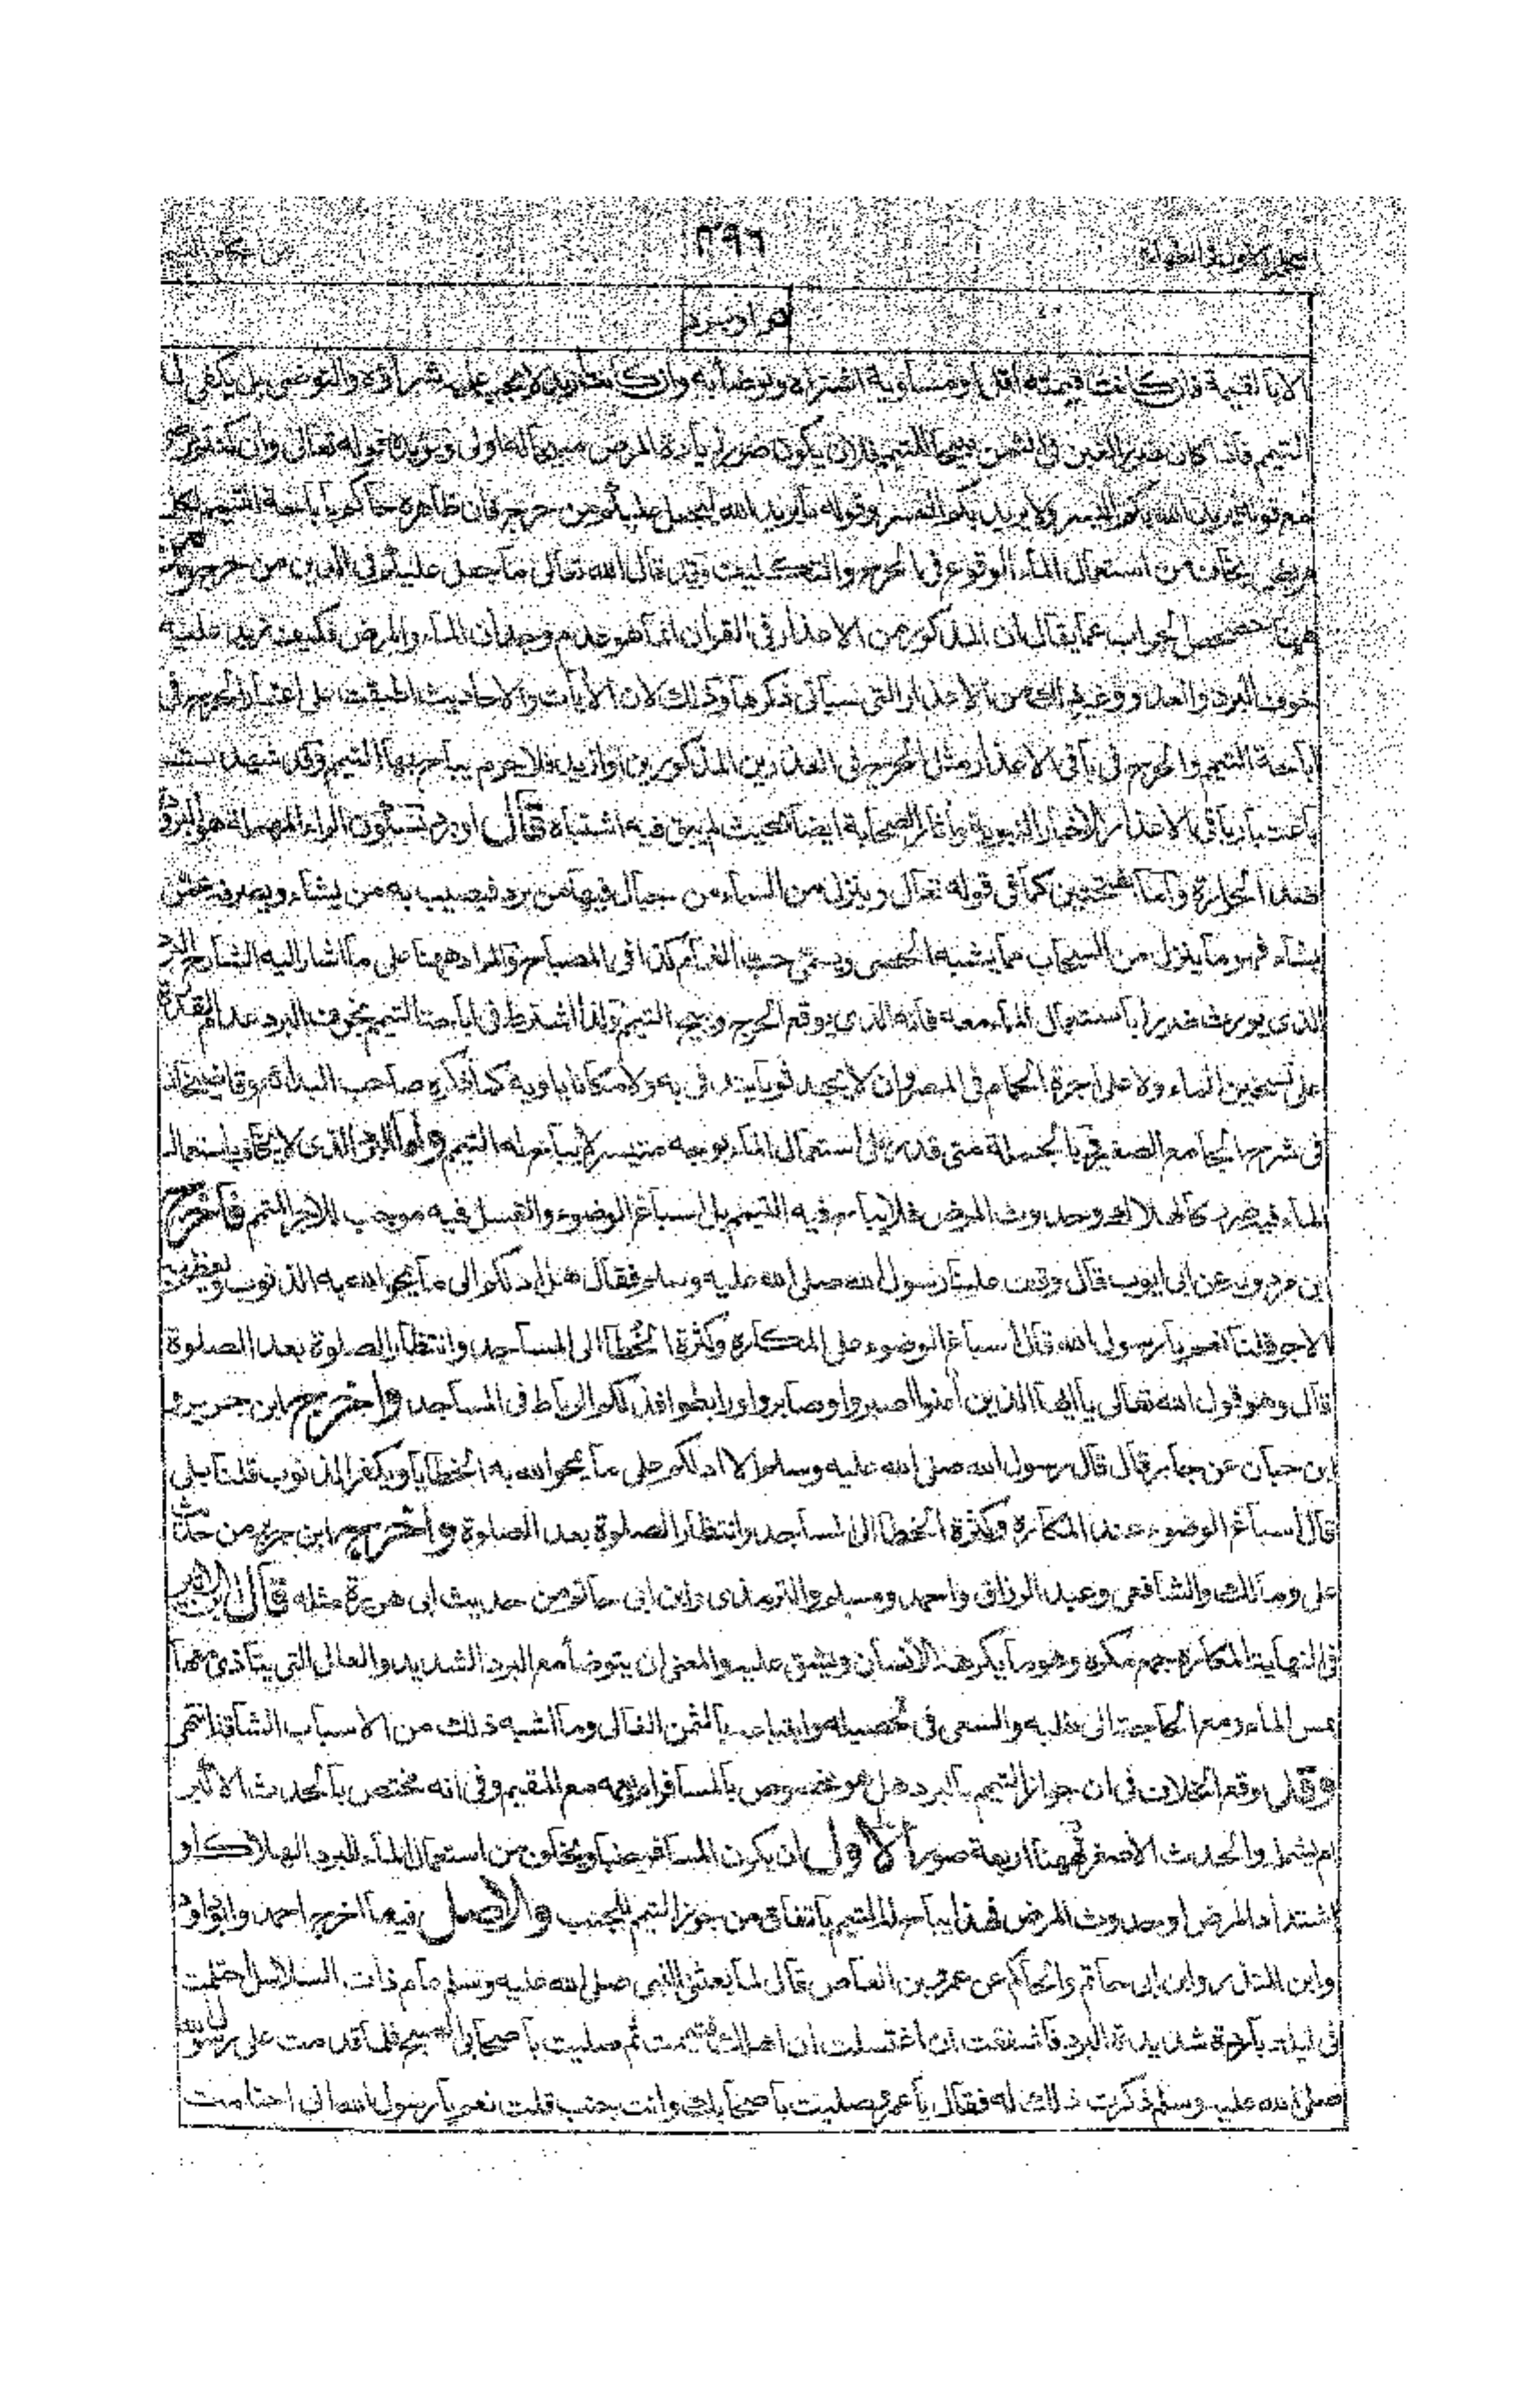 ٢٩٦
او برد
الا بالقيمة فان كانت قيمته اقل او مساوية اشتراه وتوضأ به وان كانت ازيد لا يجب عليه شراؤه والتوضى بل يكفى له
التيمم فاذا كان ضرر الغبن فى الثمن مبيحا للتيمم فلان يكون ضرر زيادة المرض مبيحا له اولى ويؤيده قوله تعالى وان كنتم مرضى
مع قوله يريد الله بكم اليسر ولا يريد بكم العسر وقوله ما يريد الله ليجعل عليكم من حرج فان ظاهره حاكم باباحة التيمم لكل
مريض يخاف من استعمال الماء الوقوع فى الحرج والتكليف وقد قال الله تعالى ما جعل عليكم فى الدين من حرج
ههنا حصحص الجواب عما يقال ان المذكور من الاعذار فى القران انما هو عدم وجدان الماء والمرض فكيف يزيد عليه
خوف البرد والعدو وغير ذلك من الاعذار التى سيأتى ذكرها وذلك لان الأيات والاحاديث اطبقت على اعتبار الحرج فى
اباحة التيمم والحرج فى باقى الاعذار مثل الحرج فى العذرين المذكورين او ازيد فلا جرم يباح بها التيمم وقد شهدت
باعتبار باقى الاعذار الاخبار النبوية وأثار الصحابة ايضا بحيث لم يبق فيه اشتباه قال او برد بسكون الراء المهملة هو البرد
ضد الحرارة واما بفتحتين كما فى قوله تعالى وينزل من السماء من جبال فيها من برد فيصيب به من يشاء ويصرفه عمن
يشاء فهو ما ينزل من السحاب مما يشبه الحصى ويسمى حب الغمام كذا فى المصباح والمراد ههنا على ما اشار اليه الشارح البرد
الذى يورث ضررا باستعمال الماء معه فانه الذى يوقع الحرج ويبيح التيمم ولذا اشترط فى اباحة التيمم بخوف البرد عدم القدرة
على تسخين الماء ولا على اجرة الحمام فى المصر وان لا يجد ثوبا يتدفى به ولا مكانا يأويه كما ذكره صاحب البدائع وقاضيخان
فى شرح الجامع الصغير وبالجملة متى قدر على استعمال الماء بوجه متيسر لا يباح له التيمم واما البرد الذى لا يخاف باستعمال
الماء فيه ضرر كالهلاك وحدوث المرض فلا يباح فيه التيمم بل اسباغ الوضوء والغسل فيه موجب للاجر التم فاخرج
ابن مردويه عن ابى ايوب قال وقف علينا رسول الله صلى الله عليه وسلم فقال هل ادلكم الى ما يمحو الله به الذنوب ويعظم به
الاجر قلنا نعم يا رسول الله قال اسباغ الوضوء على المكاره وكثرة الخطا الى المساجد وانتظار الصلوة بعد الصلوة
قال وهو قول الله تعالى يا ايها الذين أمنوا اصبروا وصابروا ورابطوا فذلكم الرباط فى المساجد واخرج ابن جرير و
ابن حبان عن جابر قال قال رسول الله صلى الله عليه وسلم الا ادلكم على ما يمحو الله به الخطايا ويكفر الذنوب قلنا بلى
قال اسباغ الوضوء عند المكاره وكثرة الخطا الى المساجد وانتظار الصلوة بعد الصلوة واخرج ابن جرير من حديث
على ومالك والشافعى وعبد الرزاق واحمد ومسلم والترمذى وابن ابى حاتم من حديث ابى هريرة مثله قال ابن الاثير
فى النهاية المكاره جمع مكره وهو ما يكرهه الانسان ويشق عليه والمعنى ان يتوضأ مع البرد الشديد والعلل التى يتأذى معها
بمس الماء ومع الحاجة الى طلبه والسعى فى تحصيله وابتياعه بالثمن الغالى وما اشبه ذلك من الاسباب الشاقة انتهى
وقد وقع الخلاف فى ان جواز التيمم بالبرد هل هو مخصوص بالمسافر ام يعمه مع المقيم وفى انه مختص بالحدث الاكبر
ام يشمله والحدث الاصغر فههنا اربعة صور الاول ان يكون المسافر جنبا ويخاف من استعمال الماء للبرد الهلاك او
اشتداد المرض او حدوث المرض فهذا يباح له التيمم باتفاق من جوز التيمم للجنب والاصل فيه ما اخرج احمد وابو داود
وابن المنذر وابن ابى حاتم والحاكم عن عمرو بن العاص قال لما بعثنى النبى صلى الله عليه وسلم عام ذات السلاسل احتلمت
فى ليلة باردة شديدة البرد فاشفقت ان اغتسلت ان اهلك فتيممت ثم صليت باصحابى الصبح فلما قدمت على رسول الله
صلى الله عليه وسلم ذكرت ذلك له فقال يا عمرو صليت باصحابك وانت جنب قلت نعم يا رسول الله انى احتلمت